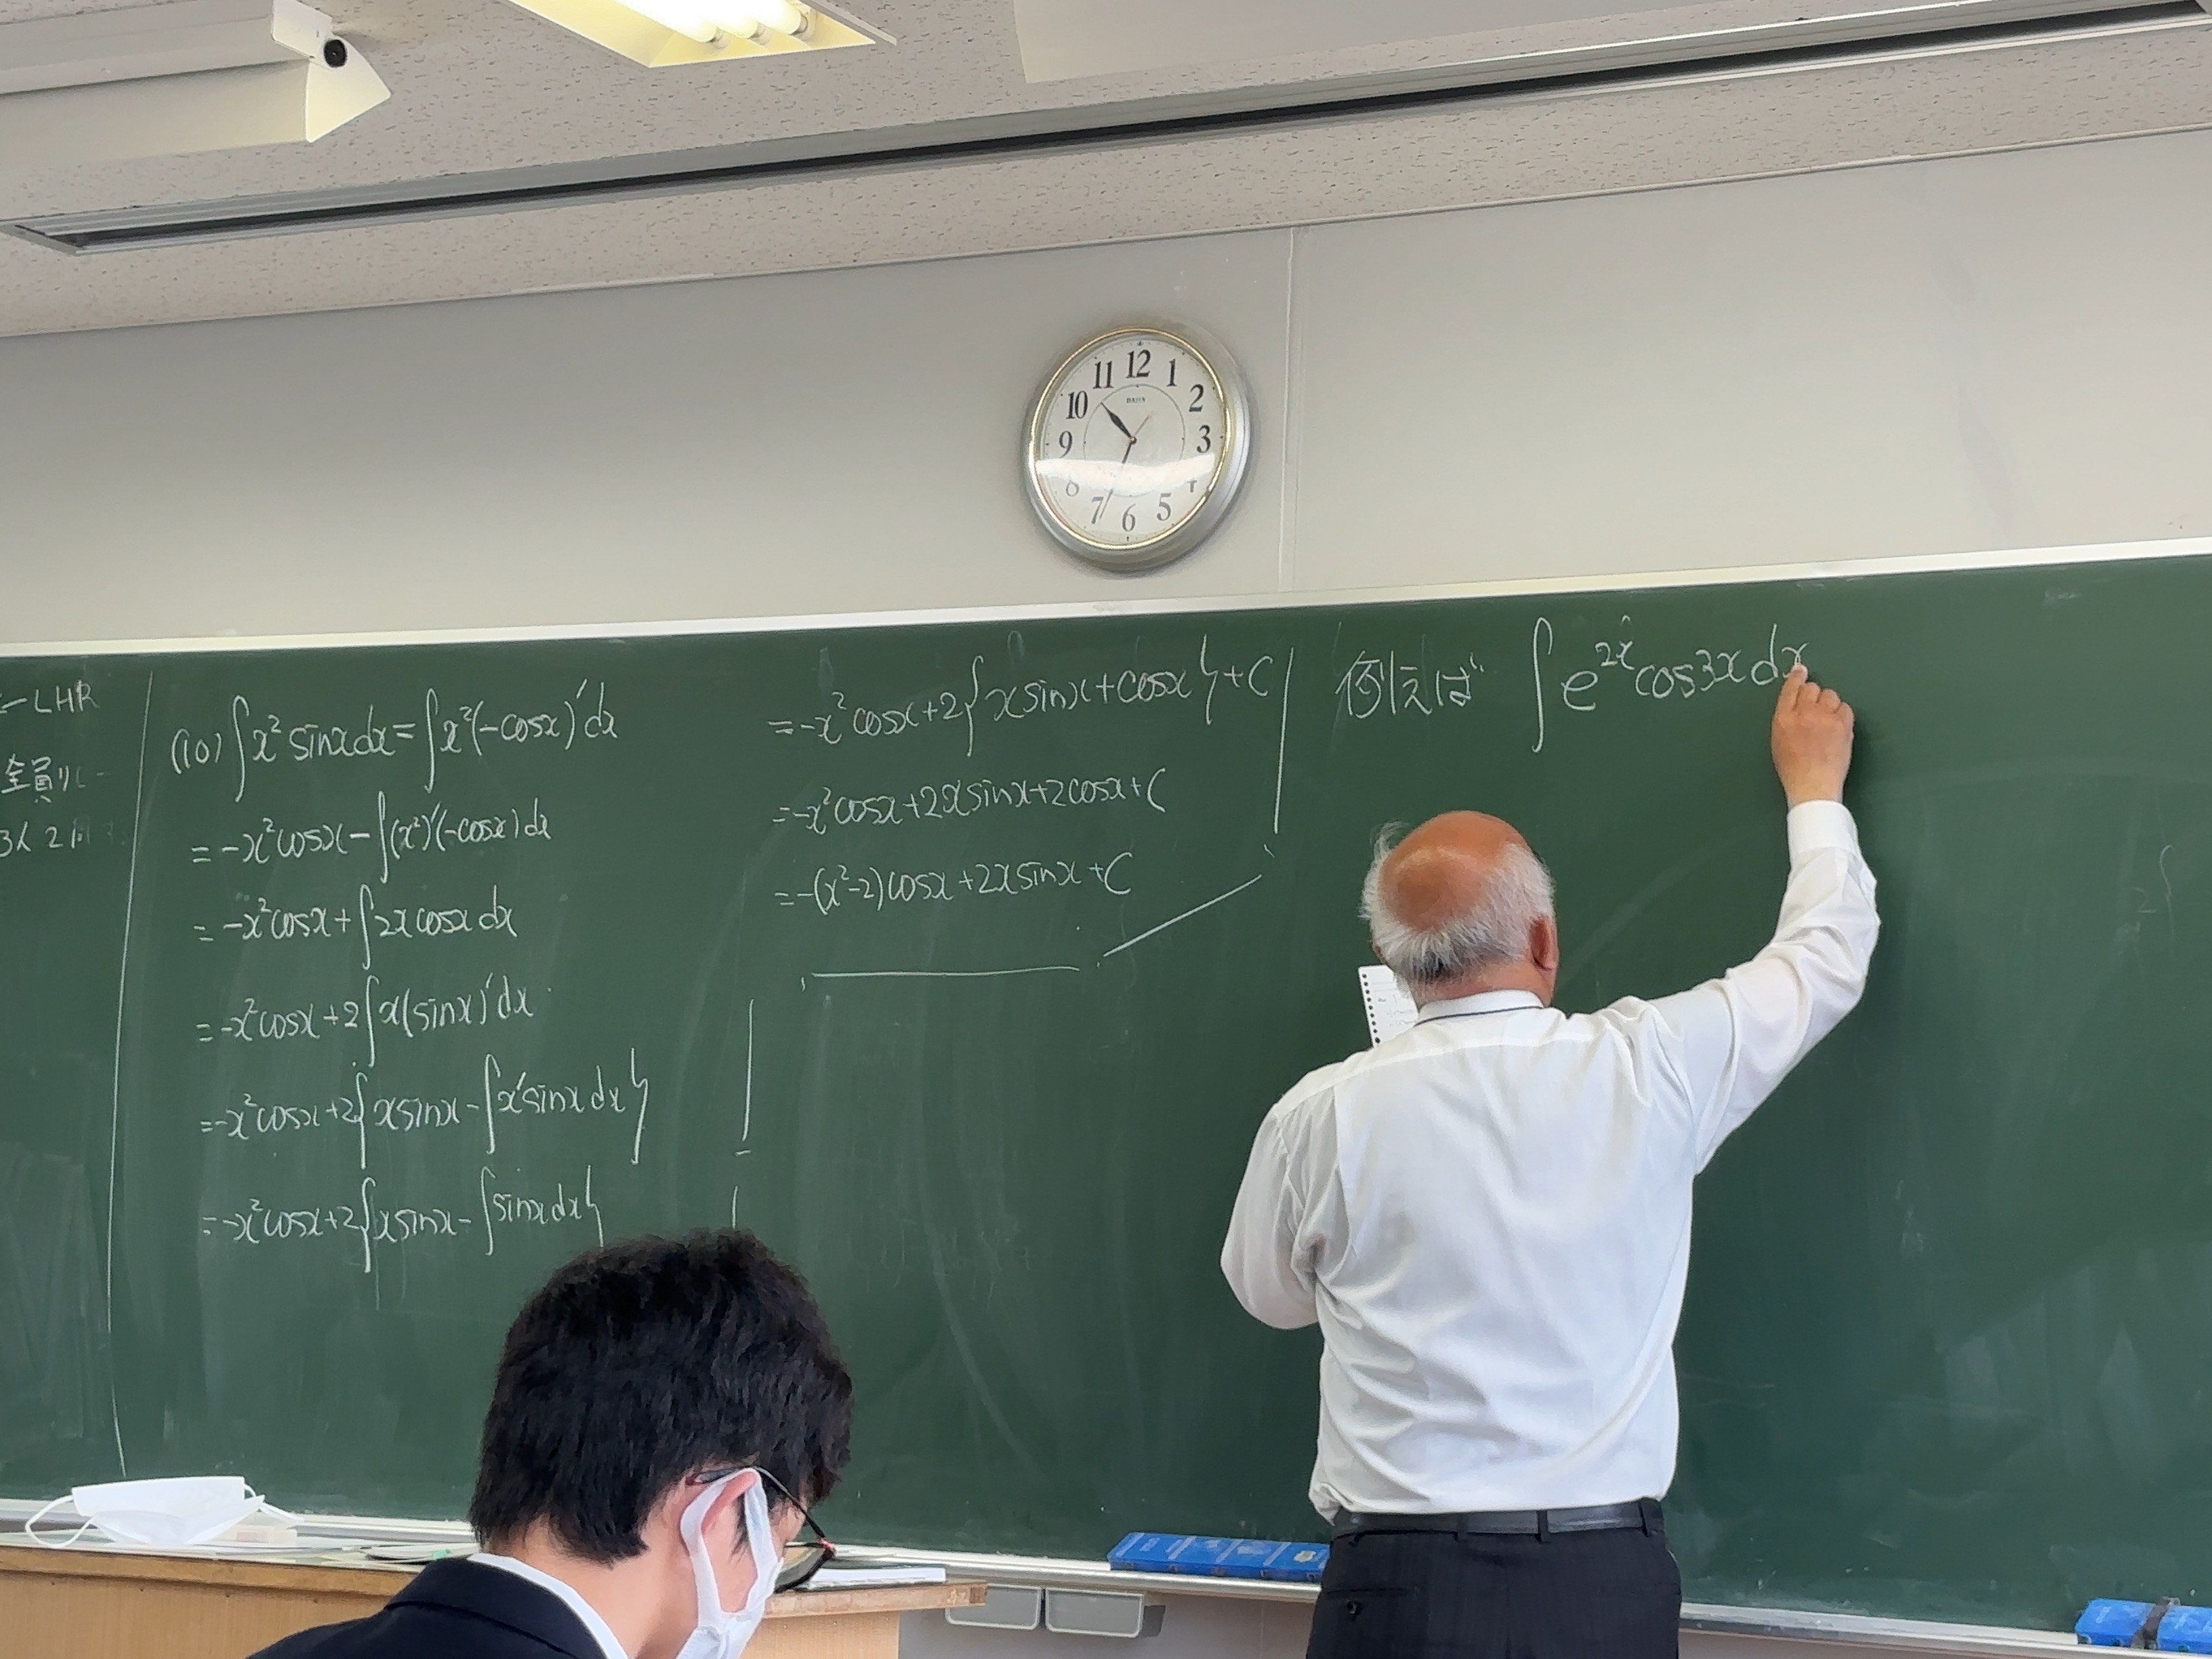 LHR
全員リレー
3人2
(10) ∫x² sinx dx = ∫x²(-cosx)′dx
= -x²cosx - ∫(x²)′(-cosx)dx
= -x²cosx + ∫2x cosx dx
= -x²cosx + 2∫x(sinx)′dx
= -x²cosx + 2{xsinx - ∫x′sinx dx}
= -x²cosx + 2{xsinx - ∫sinx dx}
= -x²cosx + 2{xsinx + cosx} + C
= -x²cosx + 2xsinx + 2cosx + C
= -(x²-2)cosx + 2xsinx + C
例えば ∫e²ˣcos3x dx
11 12 1
10 2
9 3
8 4
7 6 5